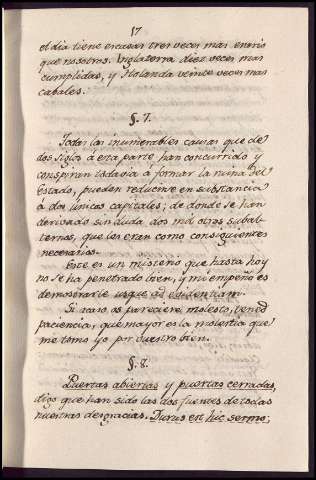 17
el dia tiene escasas tres veces mas erario
que nosotros. Inglaterra diez veces mas
cumplidas, y Holanda veinte veces mas
cabales.
§. 7.
Todas las inumerables causas que de
dos siglos á esta parte, han concurrido y
conspiran todavia á formar la ruina del
Estado, pueden reducirse en substancia
á dos unicos capitales; de donde se han
derivado sin duda dos mil otros subal-
ternas, que los eran como consiguientes
necesarios.
Este es un misterio que hasta hoy
no se ha penetrado bien, y mi empeño es
demostrarle usque ad evidentiam.
Si acaso os pareciere molesto, tened
paciencia, que mayor es la molestia que
me tomo yo por vuestro bien.
§. 8.
Puertas abiertas y puertas cerradas,
digo que han sido las dos fuentes de todas
nuestras desgracias. Durus est hic sermo;